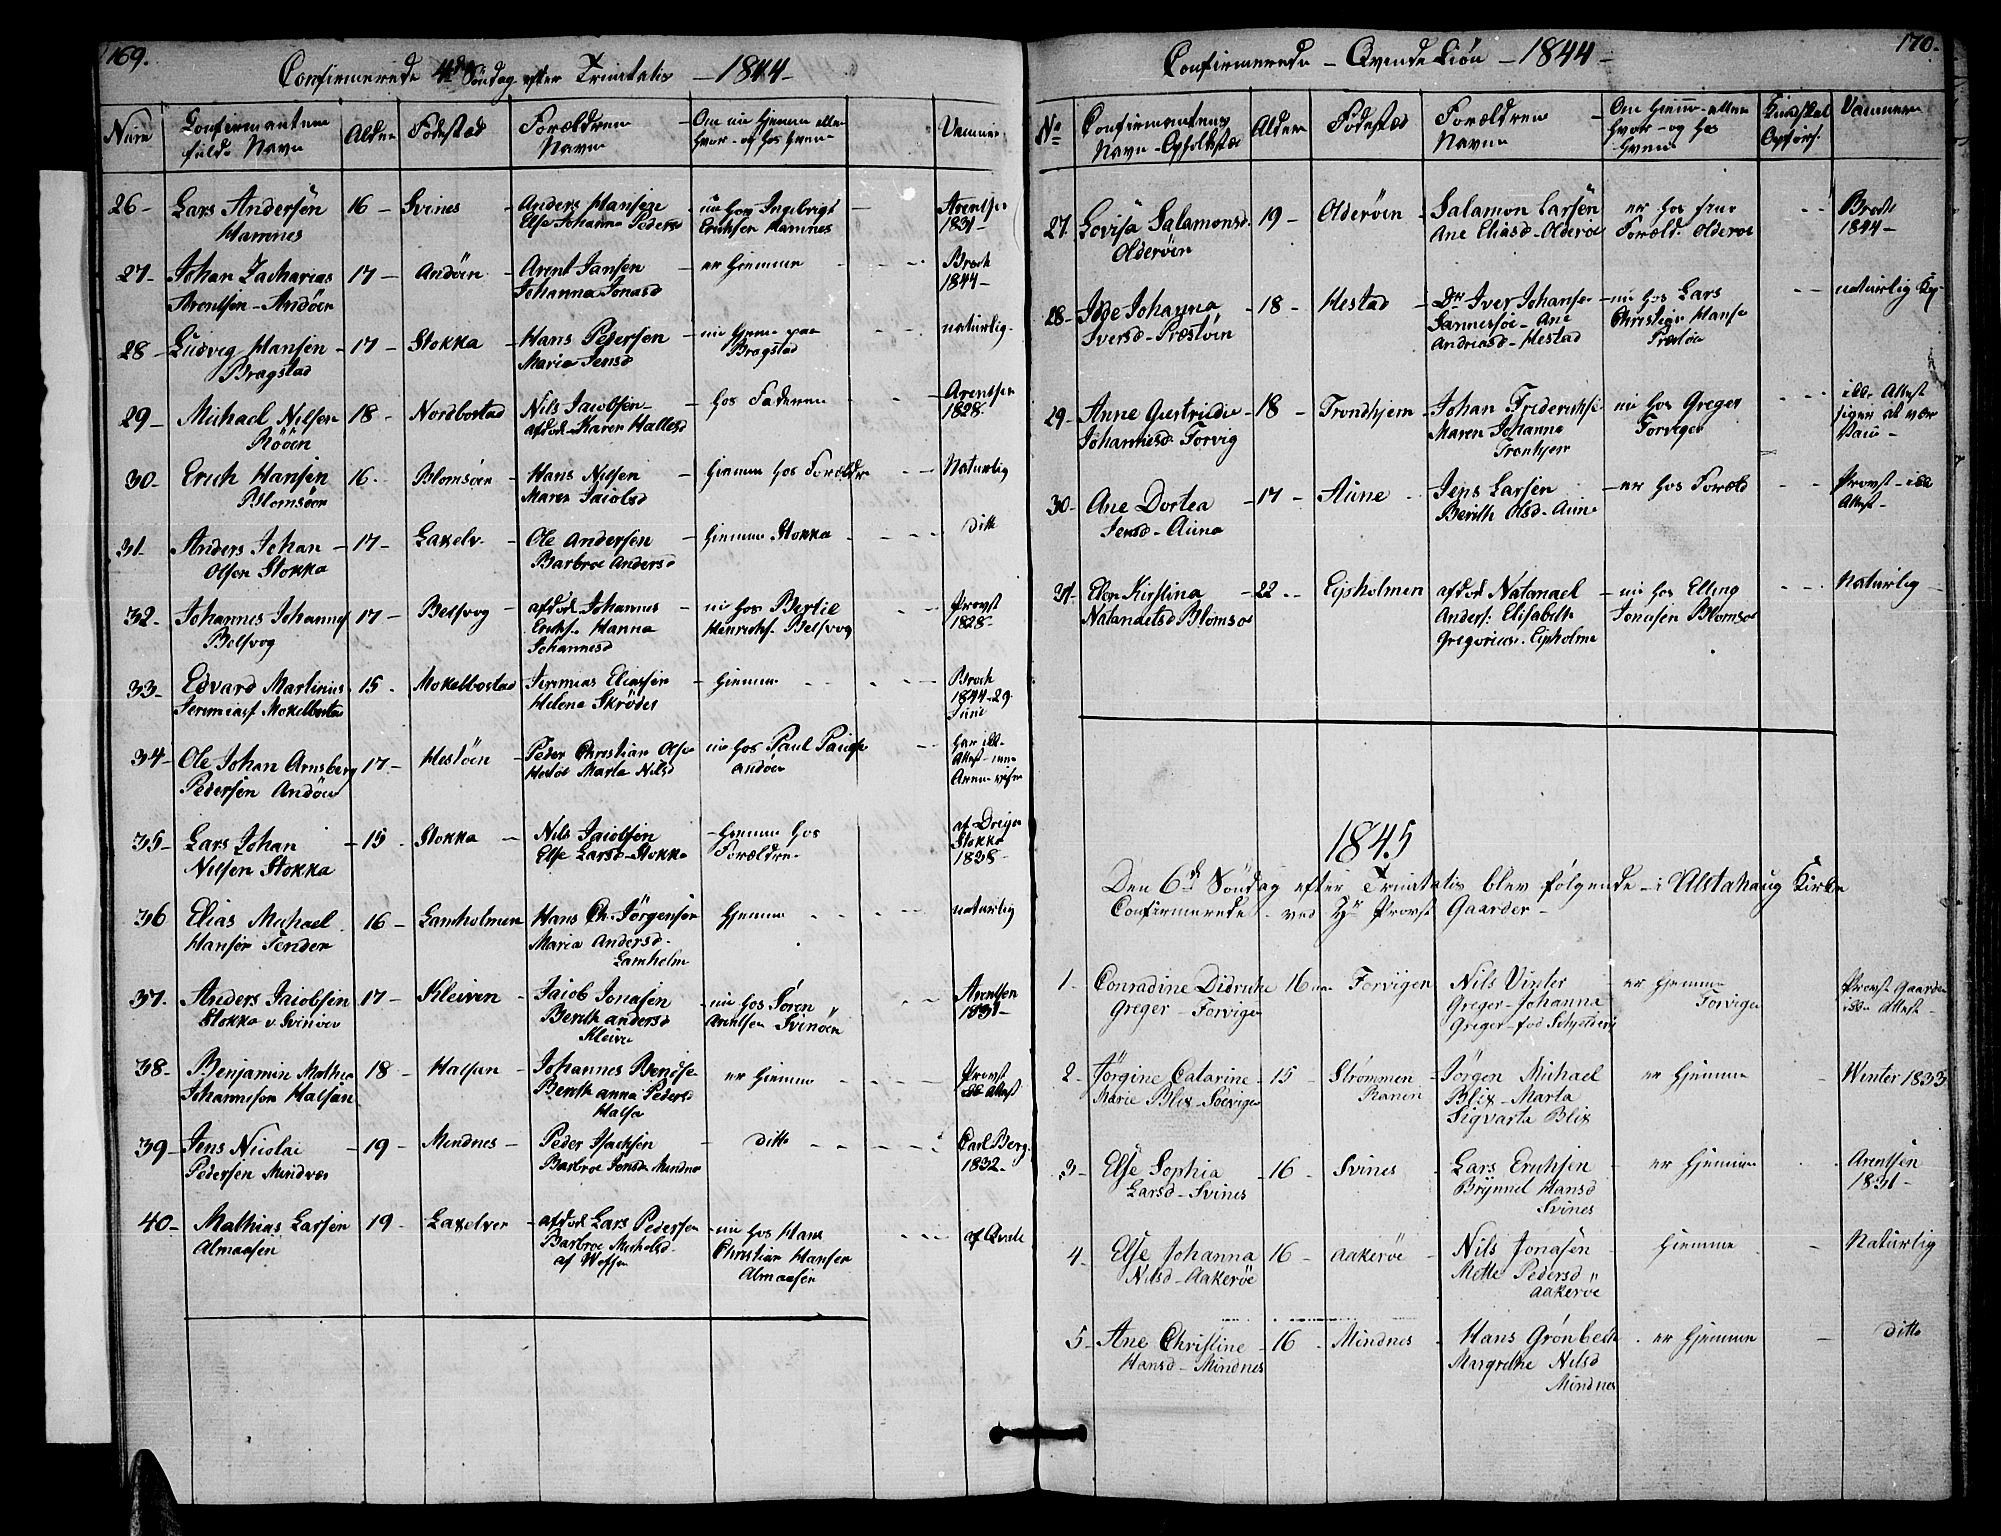 169.
Confirmerede 4de Søndag efter Trinitatis – 1844 –
Confirmanten
fulde Navn
Alder
Fødested
Forældren
Navn
Om nu Hjemme eller
hvor - og hos hvem
26 –
Lars Andersen
Hamnes
16 –
Svines
Anders Hansen
Else Johanna Peders
nu hos Ingebrigt
Erichsen Hamnes
Arentsen
1831 –
27 –
Johan Zacharias
Arentsen – Andöen
17 –
Andöen
Arent Jansen
Johanna Jonasd
er Hjemme
Broch
1844 –
28
Ludvig Hansen
Bragstad
17 –
Stokka
Hans Pedersen
Maria Jensd
nu Hjemme paa
Bragstad
naturlig
29 –
Michael Nilsen
Rööen
18 –
Nordbostad
Nils Jacobsen
afdöd Karen Hallesd
hos Faderen
Arentsen
1828
30 –
Erich Hansen
Blomsöen
16 –
Blomsöen
Hans Nilsen
Maren Jacobsd
Hjemme hos Forældre
Naturlig
31 –
Anders Johan
Olsen Stokka
17 –
Laxelv
Ole Andersen
Barbroe Andersd
Hjemme Stokka
ditto
32 –
Johannes Johannes
Belsvog
17 –
Belsvog
afdöd Johannes
Erichs. Hanna
Johannesd
nu hos Bertil
Henrichs. Belsvog
Provst
1828 –
33 –
Edvard Martinus
Jeremiass Mokelbosta
15 –
Mokelbostad
Jeremias Eliassen
Helena Skröder
Hjemme
Broch
1844 – 29
Juni
34
Ole Johan Arnsberg
Pedersen Andöen
17 –
Hestöen
Peder Christian Ols
Hestöe Marta Nilsd
nu hos Paul Paul
Andöen
har ikke
Attest
35 –
Lars Johan
Nilsen Stokka
15
Stokka
Nils Jacobsen
Else Larsd – Stokka
Hjemme hos
Forældre
af Dreyer
Stokka
1838 –
36
Elias Michael
Hansen Tenden
16 –
Lamholmen
Hans Ch. Jörgensen
Maria Andersd.
Lamholm
Hjemme
naturlig
37 –
Anders Jacobsen
Stokka v. Svinöen
17 –
Kleiven
Jacob Jonasen
Berith Andersd
Kleive
nu hos Sören
Arentsen Svinöen
Arentsen
1831 –
38 –
Benjamin Mathia
Johannesen Halsan
18
Halsan
Johannes Bendse
Berith Anna Pedersd
Halsa
er Hjemme
Provst
ikke Attest
39 –
Jens Nicolai
Pedersen Mindnes
19 –
Mindnes
Peder Isachsen
Barbroe Jensd Mindne
ditto
Carl Berg
1832 –
40 –
Mathias Larsen
Almaasen
19 –
Laxelver
afdöd Lars Pedersen
Barbroe Michelsd.
af Vefsen
nu hos Hans
Christian Hansen
Almaasen
170.
Confirmerede – Qvinde Kiön – 1844 –
No
Confirmantens
Navn – Opholdsted
Alder
Födested
Forældren
Navne
Om Hjemme – eller
hvor – og hos
hvem
27
Lovisa Salamonsd.
Olderöen
19 –
Olderöen
Salamon Larsen
Ane Eliasd – Olderöe
er hos sine
Foræld. Olderöe
Broch
1844 –
28 –
Ide Johanna
Iversd – Præstöen
18 –
Hestad
Dr Iver Johanse
Sannesöe – Ane
Andreasd – Hestad
nu hos Lars
Christian Hanse
Præstöe
naturlig
29 –
Anne Giertrudie
Johannesd – Forvig
18 –
Trondhjem
Johan Frederichse
Maren Johanna
Tronhjem
nu hos Greger
Forvigen
ikke Attest
siger at vær
Vacc –
30 –
Ane Dortea
Jensd – Auna
17 –
Aune
Jens Larsen
Berith Olsd – Aune
er hos Foræld
Provst – ikke
Attest –
31 –
Elen Kirstina
Natanaelsd Blomsøe
22
Lipholmen
afdöd Natanael
Anders: Elisabeth
Gregorius. Lipholme
nu hos Elling
Jonasen Blomsøe
Naturlig –
1845
Den 6te Söndag efter Trinitatis blev fölgende – i Alstahaug Kirke
Confirmerede – ved Hr Provst Gaarder –
1
Conradine Didrike
Greger – Forvigen
16
Forvigen
Nils Vinter
Greger – Johanna
Greger – fød Schjelderu
er Hjemme
Forvigen
Provst Gaarder
ikke Attest –
2 –
Jörgine Catarine
Marie Blix – Soevigen
15 –
Strömmen
Ranen
Jörgen Michael
Blix – Marta
Sigvarta Blix
er Hjemme
Winter 1833
3 –
Else Sophia
Larsd – Svines
16
Svines
Lars Erichsen
Brynnel Hansd
Svines
er Hjemme
Arentsen
1831 –
4 –
Else Johanna
Nilsd – Aakeröe
16
Aakeröe
Nils Jonasen
Mette Pedersd
Aakeröe
Hjemme
Naturlig
5 –
Ane Christine
Hansd – Mindnes
16
Mindnes
Hans Grönbech
Margrethe Nilsd
Mindnes
er Hjemme
ditto